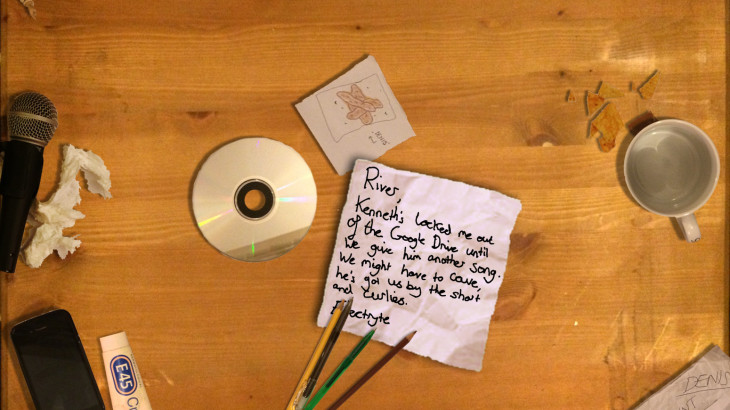 River,
Kenneth's locked me out
of the Google Drive until
we give him another song.
We might have to cave,
he's got us by the short
and curlies.
Electryte
DENIS
E45
DENIS